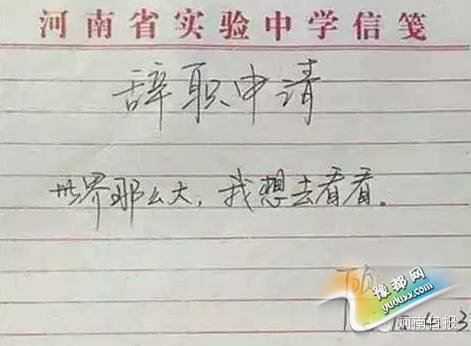 河南省实验中学信笺
辞职申请
世界那么大，我想去看看.
豫都网
yuduxx.com
河南日报